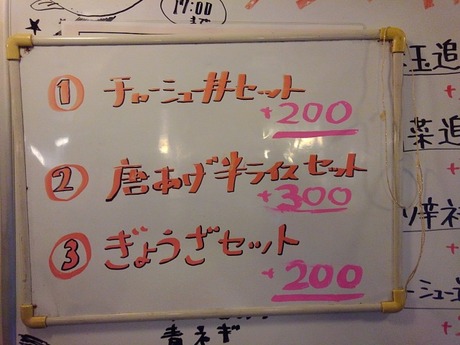 17:00
まで
① チャーシュー丼セット
+200
② 唐あげ半ライスセット
+300
③ ぎょうざセット
+200
玉追
菜追
青ネギ